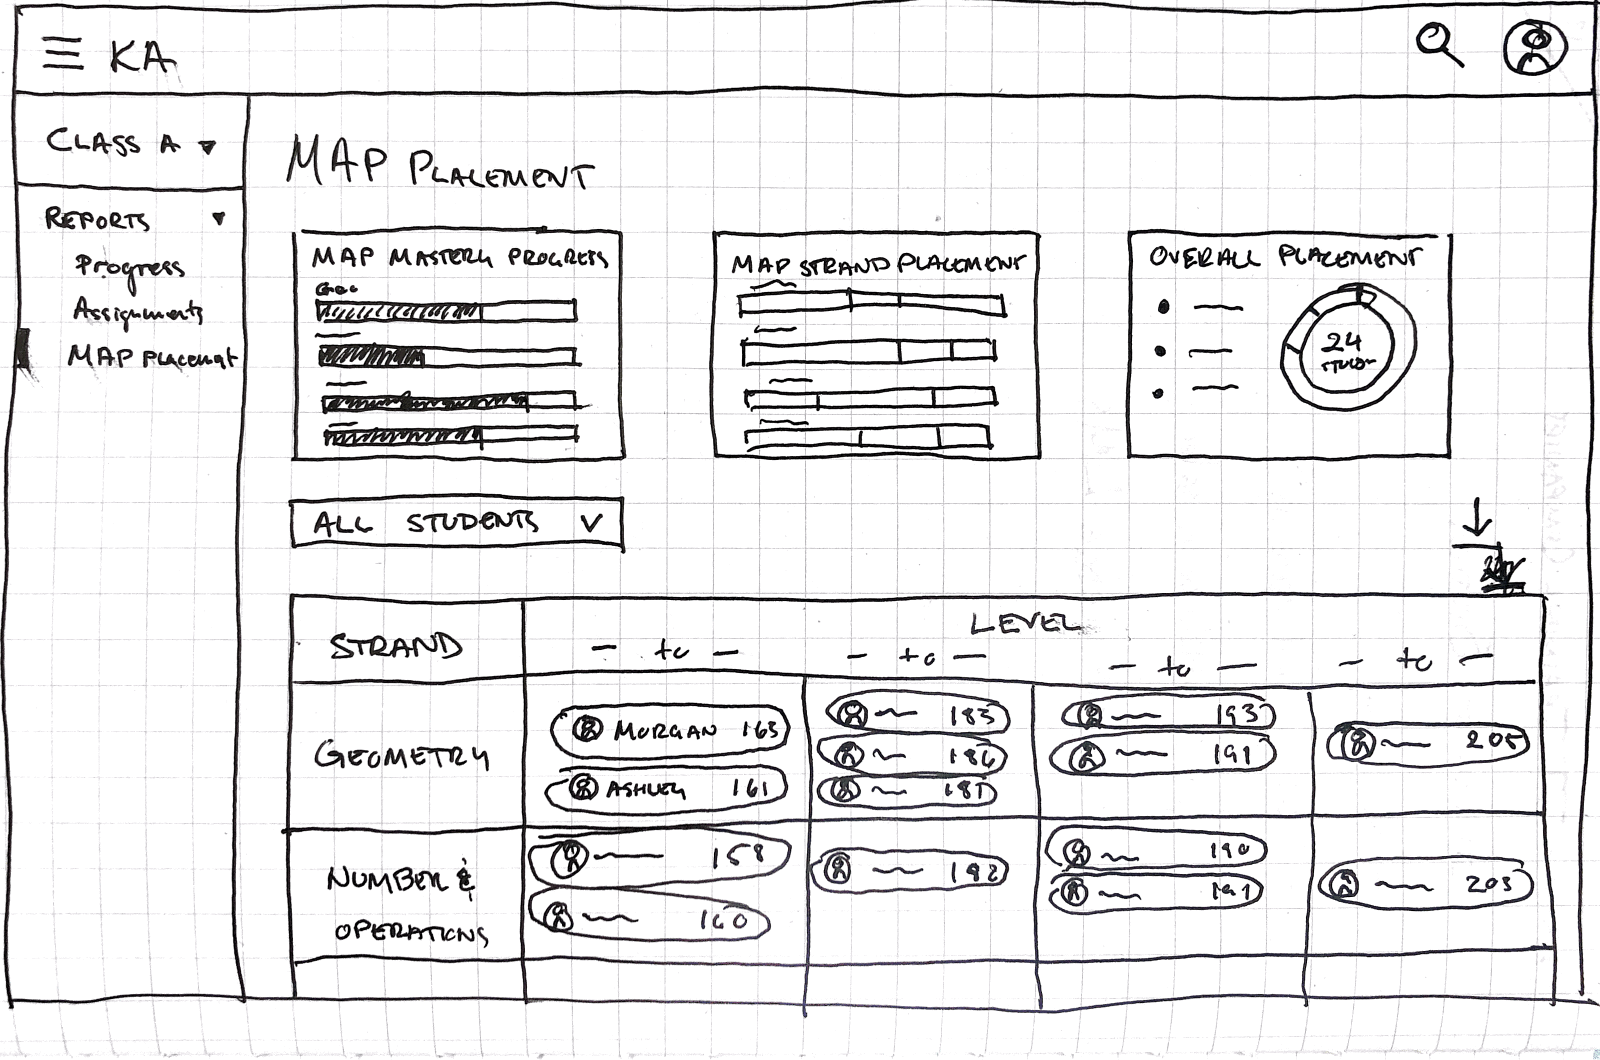 KA
CLASS A
MAP PLACEMENT
REPORTS
Progress
Assignments
MAP Placemnt
MAP MASTERY PROGRESS
Geo
MAP STRAND PLACEMENT
OVERALL PLACEMENT
24
ALL STUDENTS
STRAND
LEVEL
— to —
— to —
— to —
— to —
GEOMETRY
MORGAN 163
ASHLEY 161
183
186
181
193
191
205
NUMBER &
OPERATIONS
158
160
182
190
191
203